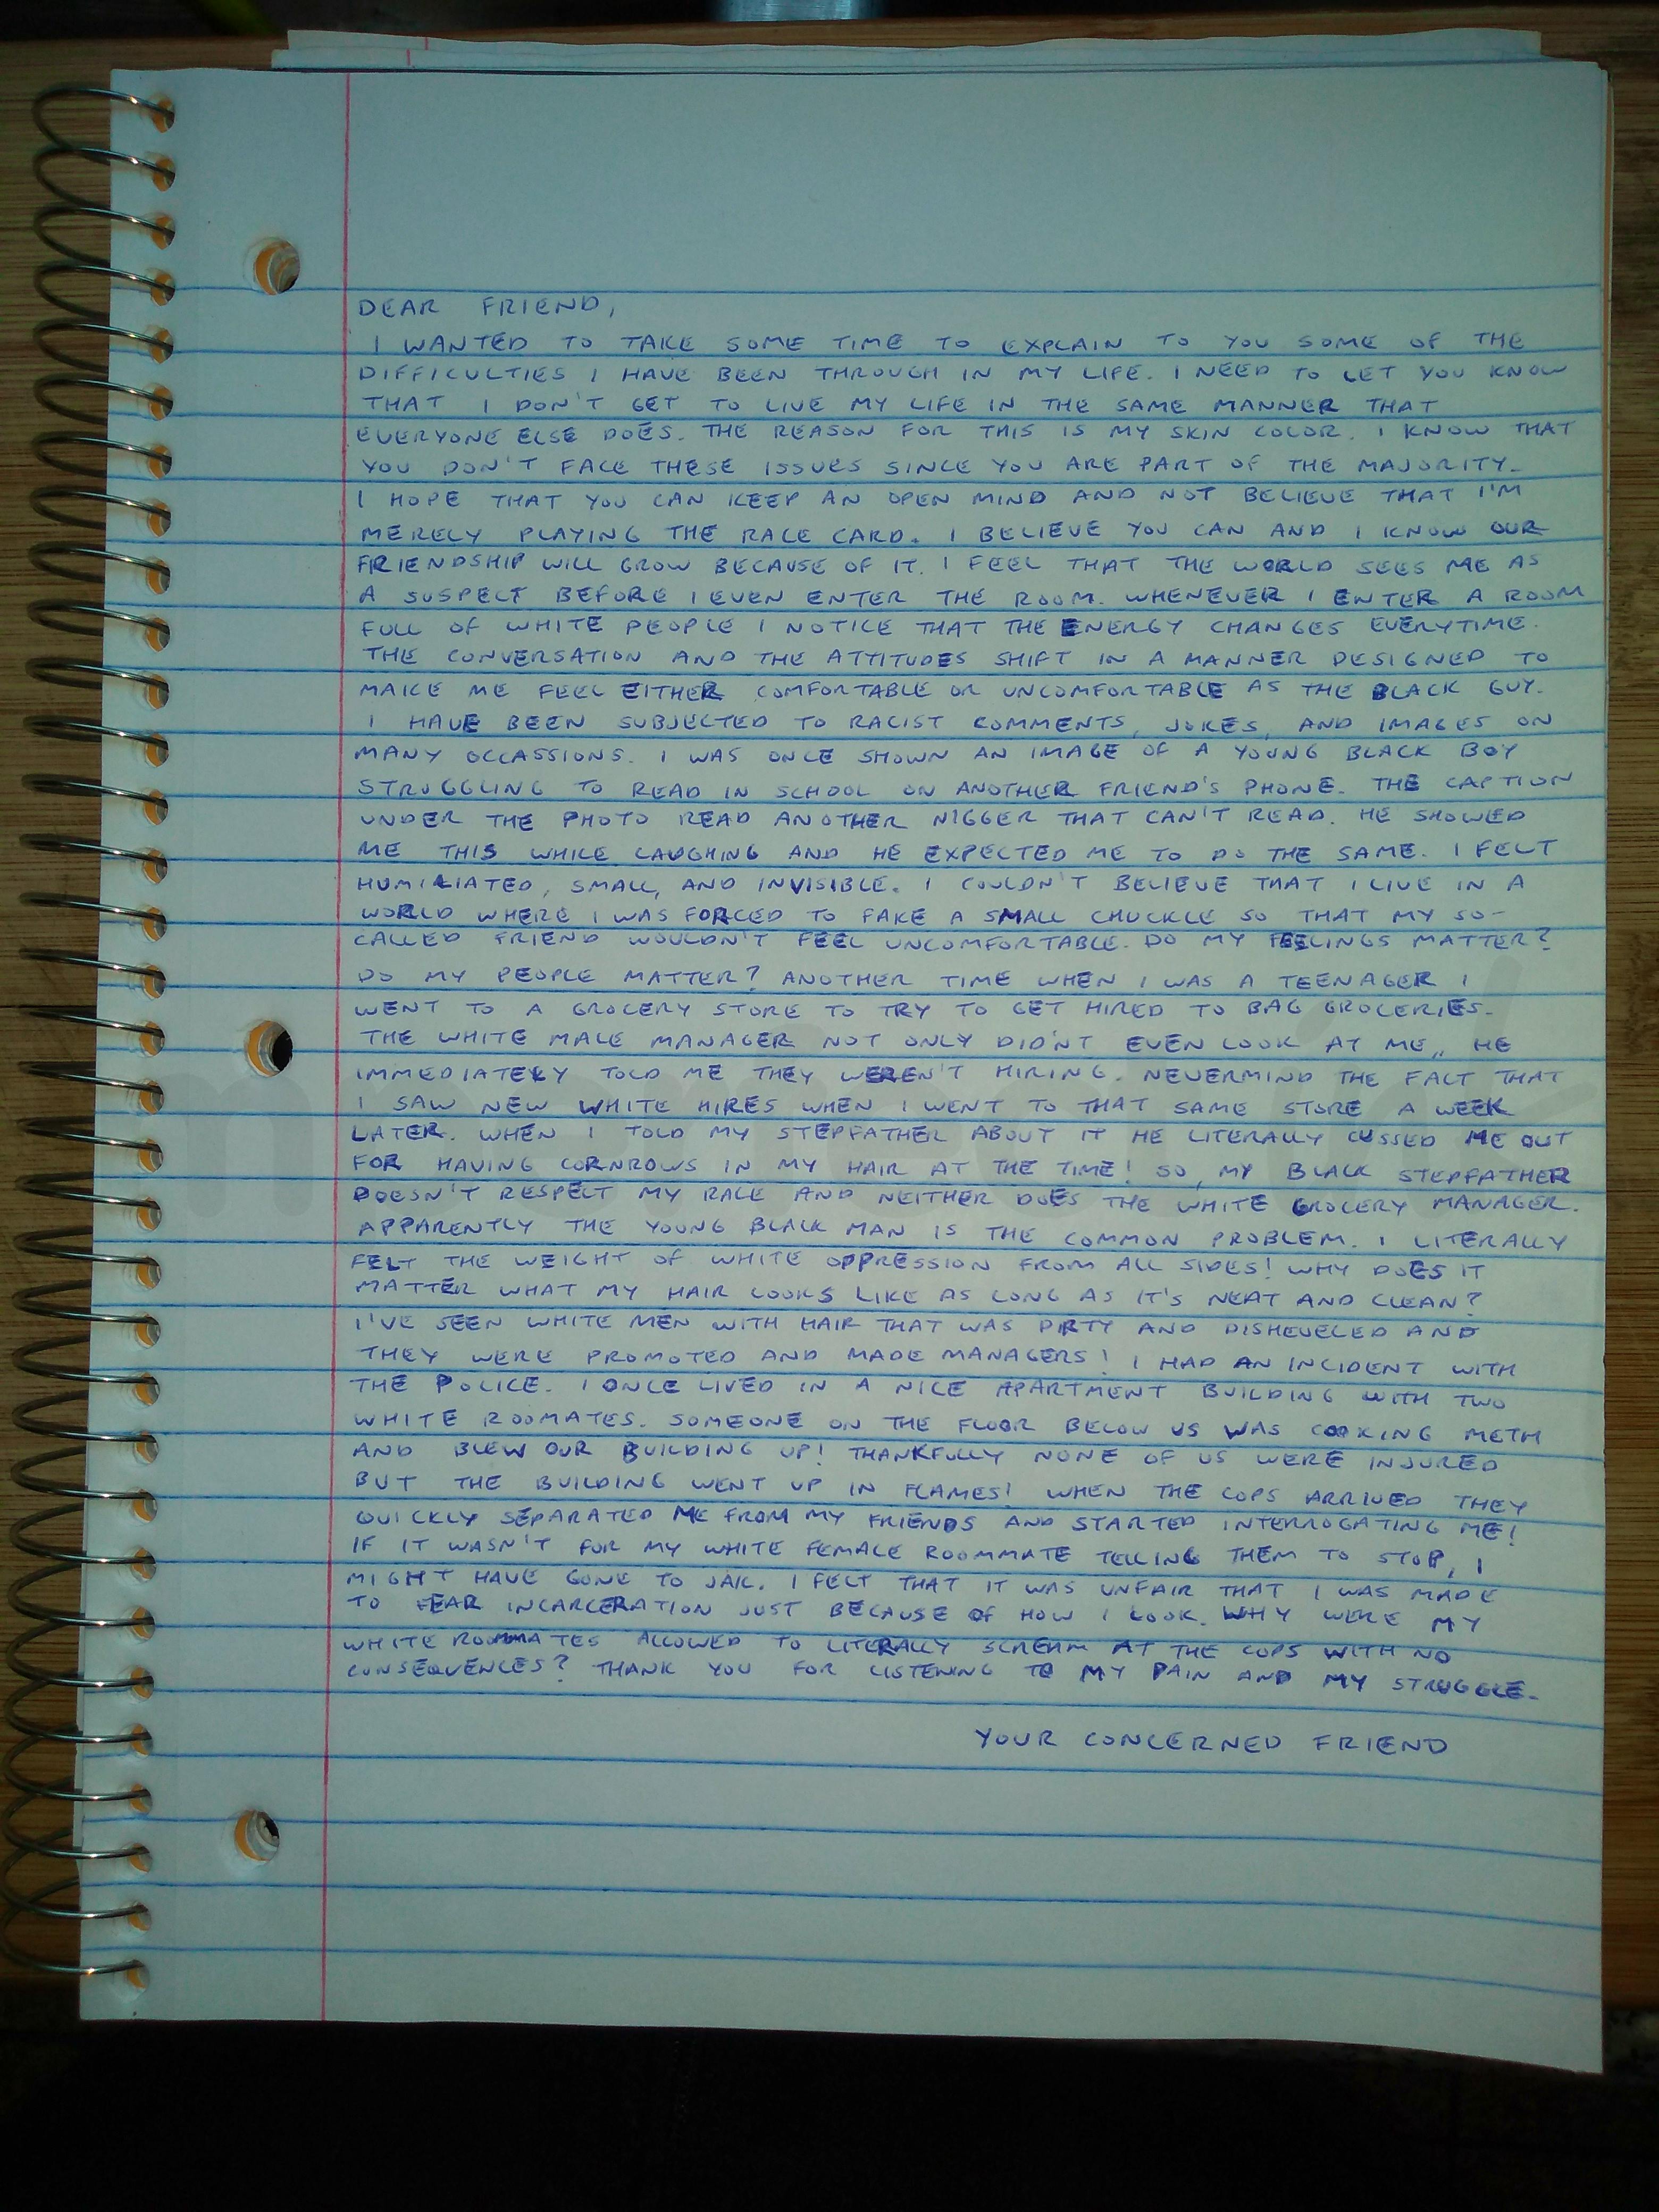 DEAR FRIEND,
I WANTED TO TAKE SOME TIME TO EXPLAIN TO YOU SOME OF THE
DIFFICULTIES I HAVE BEEN THROUGH IN MY LIFE. I NEED TO LET YOU KNOW
THAT I DON'T GET TO LIVE MY LIFE IN THE SAME MANNER THAT
EVERYONE ELSE DOES. THE REASON FOR THIS IS MY SKIN COLOR. I KNOW THAT
YOU DON'T FACE THESE ISSUES SINCE YOU ARE PART OF THE MAJORITY.
I HOPE THAT YOU CAN KEEP AN OPEN MIND AND NOT BELIEVE THAT I'M
MERELY PLAYING THE RACE CARD. I BELIEVE YOU CAN AND I KNOW OUR
FRIENDSHIP WILL GROW BECAUSE OF IT. I FEEL THAT THE WORLD SEES ME AS
A SUSPECT BEFORE I EVEN ENTER THE ROOM. WHENEVER I ENTER A ROOM
FULL OF WHITE PEOPLE I NOTICE THAT THE ENERGY CHANGES EVERYTIME.
THE CONVERSATION AND THE ATTITUDES SHIFT IN A MANNER DESIGNED TO
MAKE ME FEEL EITHER COMFORTABLE OR UNCOMFORTABLE AS THE BLACK GUY.
I HAVE BEEN SUBJECTED TO RACIST COMMENTS, JOKES, AND IMAGES ON
MANY OCCASSIONS. I WAS ONCE SHOWN AN IMAGE OF A YOUNG BLACK BOY
STRUGGLING TO READ IN SCHOOL ON ANOTHER FRIEND'S PHONE. THE CAPTION
UNDER THE PHOTO READ ANOTHER NIGGER THAT CAN'T READ. HE SHOWED
ME THIS WHILE LAUGHING AND HE EXPECTED ME TO DO THE SAME. I FELT
HUMILIATED, SMALL, AND INVISIBLE. I COULDN'T BELIEVE THAT I LIVE IN A
WORLD WHERE I WAS FORCED TO FAKE A SMALL CHUCKLE SO THAT MY SO-
CALLED FRIEND WOULDN'T FEEL UNCOMFORTABLE. DO MY FEELINGS MATTER?
DO MY PEOPLE MATTER? ANOTHER TIME WHEN I WAS A TEENAGER I
WENT TO A GROCERY STORE TO TRY TO GET HIRED TO BAG GROCERIES.
THE WHITE MALE MANAGER NOT ONLY DIDN'T EVEN LOOK AT ME,, HE
IMMEDIATELY TOLD ME THEY WEREN'T HIRING. NEVERMIND THE FACT THAT
I SAW NEW WHITE HIRES WHEN I WENT TO THAT SAME STORE A WEEK
LATER. WHEN I TOLD MY STEPFATHER ABOUT IT HE LITERALLY CUSSED ME OUT
FOR HAVING CORNROWS IN MY HAIR AT THE TIME! SO, MY BLACK STEPFATHER
DOESN'T RESPECT MY RACE AND NEITHER DOES THE WHITE GROCERY MANAGER.
APPARENTLY THE YOUNG BLACK MAN IS THE COMMON PROBLEM. I LITERALLY
FELT THE WEIGHT OF WHITE OPPRESSION FROM ALL SIDES! WHY DOES IT
MATTER WHAT MY HAIR LOOKS LIKE AS LONG AS IT'S NEAT AND CLEAN?
I'VE SEEN WHITE MEN WITH HAIR THAT WAS DIRTY AND DISHEVELED AND
THEY WERE PROMOTED AND MADE MANAGERS! I HAD AN INCIDENT WITH
THE POLICE. I ONCE LIVED IN A NICE APARTMENT BUILDING WITH TWO
WHITE ROOMATES. SOMEONE ON THE FLOOR BELOW US WAS COOKING METH
AND BLEW OUR BUILDING UP! THANKFULLY NONE OF US WERE INJURED
BUT THE BUILDING WENT UP IN FLAMES! WHEN THE COPS ARRIVED THEY
QUICKLY SEPARATED ME FROM MY FRIENDS AND STARTED INTERROGATING ME!
IF IT WASN'T FOR MY WHITE FEMALE ROOMMATE TELLING THEM TO STOP, I
MIGHT HAVE GONE TO JAIL. I FELT THAT IT WAS UNFAIR THAT I WAS MADE
TO FEAR INCARCERATION JUST BECAUSE OF HOW I LOOK. WHY WERE MY
WHITE ROOMMATES ALLOWED TO LITERALLY SCREAM AT THE COPS WITH NO
CONSEQUENCES? THANK YOU FOR LISTENING TO MY PAIN AND MY STRUGGLE.
YOUR CONCERNED FRIEND